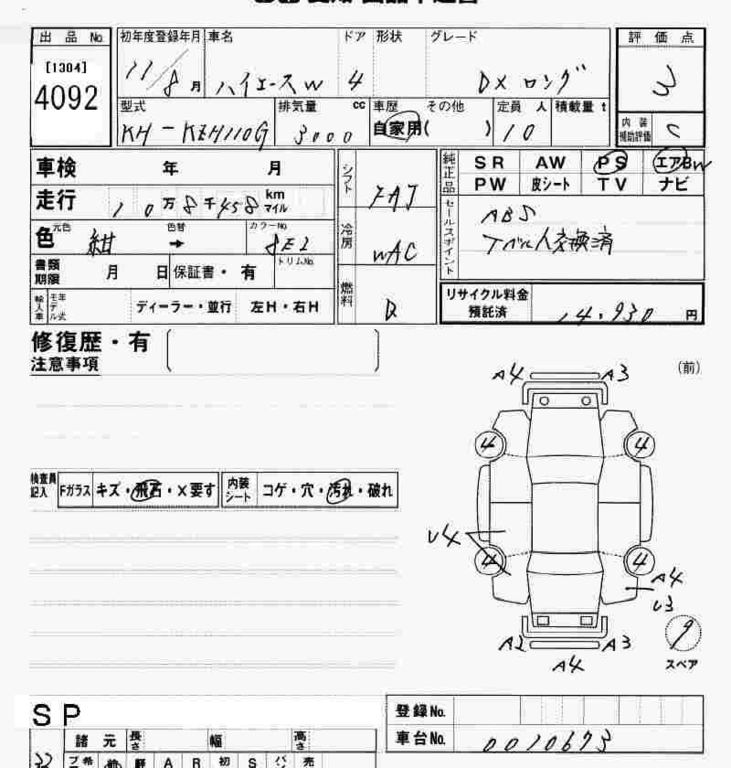 出品No. 初年度登録年月 車名 ドア 形状 グレード 評価点
[1304]
4092
11/8月 ハイエースW 4 DX ロング 3
型式 排気量 cc 車歴 その他 定員 人 積載量 t 内装補助評価 C
KH-KZH110G 3000 自家用( ) 10
車検 年 月 シフト FAT 純正品 SR AW PS エアB W
PW 皮シート TV ナビ
走行 10万8千458 km マイル
セールスポイント ABS
色 元色 紺 色替 → カラーNo. 8E2 冷房 WAC
Tベルト交換済
書類期限 月 日 保証書・有 トリムNo.
輸入車 モデル年式 ディーラー・並行 左H・右H 燃料 D
リサイクル料金預託済 14,930 円
修復歴・有
注意事項
(前)
A4 A3
4 4
検査員記入 Fガラス キズ・飛石・X要す 内装シート コゲ・穴・汚れ・破れ
U4
4 4
A4
U3
A2 A3
A4
9
スペア
SP
登録No.
諸元 長さ 幅 高さ
車台No. 0010673